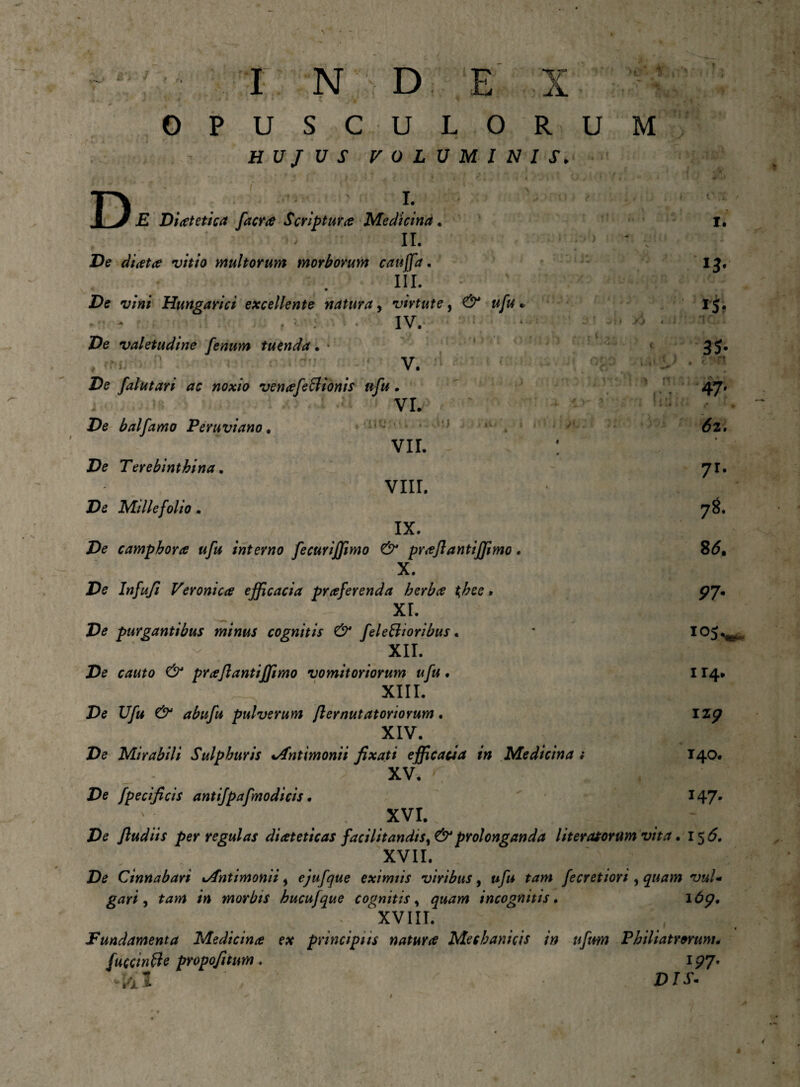 INDEX
OPUSCULORUM
HUJUS VOLUMINIS.
I.
DE Diætetica ſacræ Scripturæ Medicina. 1.
II.
De diætæ vitio multorum morborum cauſſa. 13.
III.
De vini Hungarici excellente natura, virtute, & uſu. 15.
IV.
De valetudine ſenum tuenda. 35.
V.
De ſalutari ac noxio venæſectionis uſu. 47.
VI.
De balſamo Peruviano. 62.
VII.
De Terebinthina. 71.
VIII.
De Millefolio. 78.
IX.
De camphoræ uſu interno ſecuriſſimo & præſtantiſſimo. 86.
X.
De Infuſi Veronicæ efficacia præferenda herbæ thee. 97.
XI.
De purgantibus minus cognitis & ſelectioribus. 105.
XII.
De cauto & præſtantiſſimo vomitoriorum uſu. 114.
XIII.
De Uſu & abuſu pulverum ſternutatoriorum. 129
XIV.
De Mirabili Sulphuris Antimonii fixati efficacia in Medicina; 140.
XV.
De ſpecificis antiſpaſmodicis. 147.
XVI.
De ſtudiis per regulas diæteticas facilitandis, & prolonganda literatorum vita. 156.
XVII.
De Cinnabari Antimonii, ejuſque eximiis viribus, uſu tam ſecretiori, quam vul-
gari, tam in morbis hucuſque cognitis, quam incognitis. 169.
XVIII.
Fundamenta Medicinæ ex principiis naturæ Mechanicis in uſum Philiatrorum.
ſuccincte propoſitum. 197.
DIS-